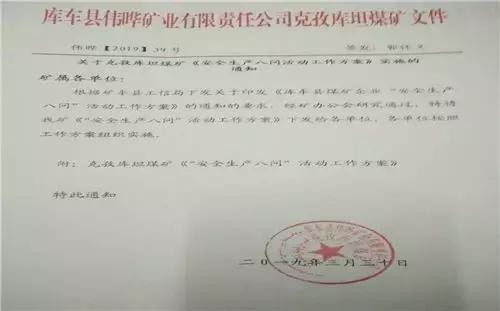 库车县伟晔矿业有限责任公司克孜库坦煤矿文件
伟晔【2019】39号 签发：郭伟义
关于克孜库坦煤矿《安全生产八问活动工作方案》实施的
通知
矿属各单位：
根据库车县工信局下发关于印发《库车县煤矿企业“安全生产
八问”活动工作方案》的通知的要求，经矿办公会研究通过，特将
我矿《“安全生产八问”活动工作方案》下发给各单位，各单位按照
工作方案组织实施。
附：克孜库坦煤矿《“安全生产八问”活动工作方案》
特此通知
二〇一九年三月三十日